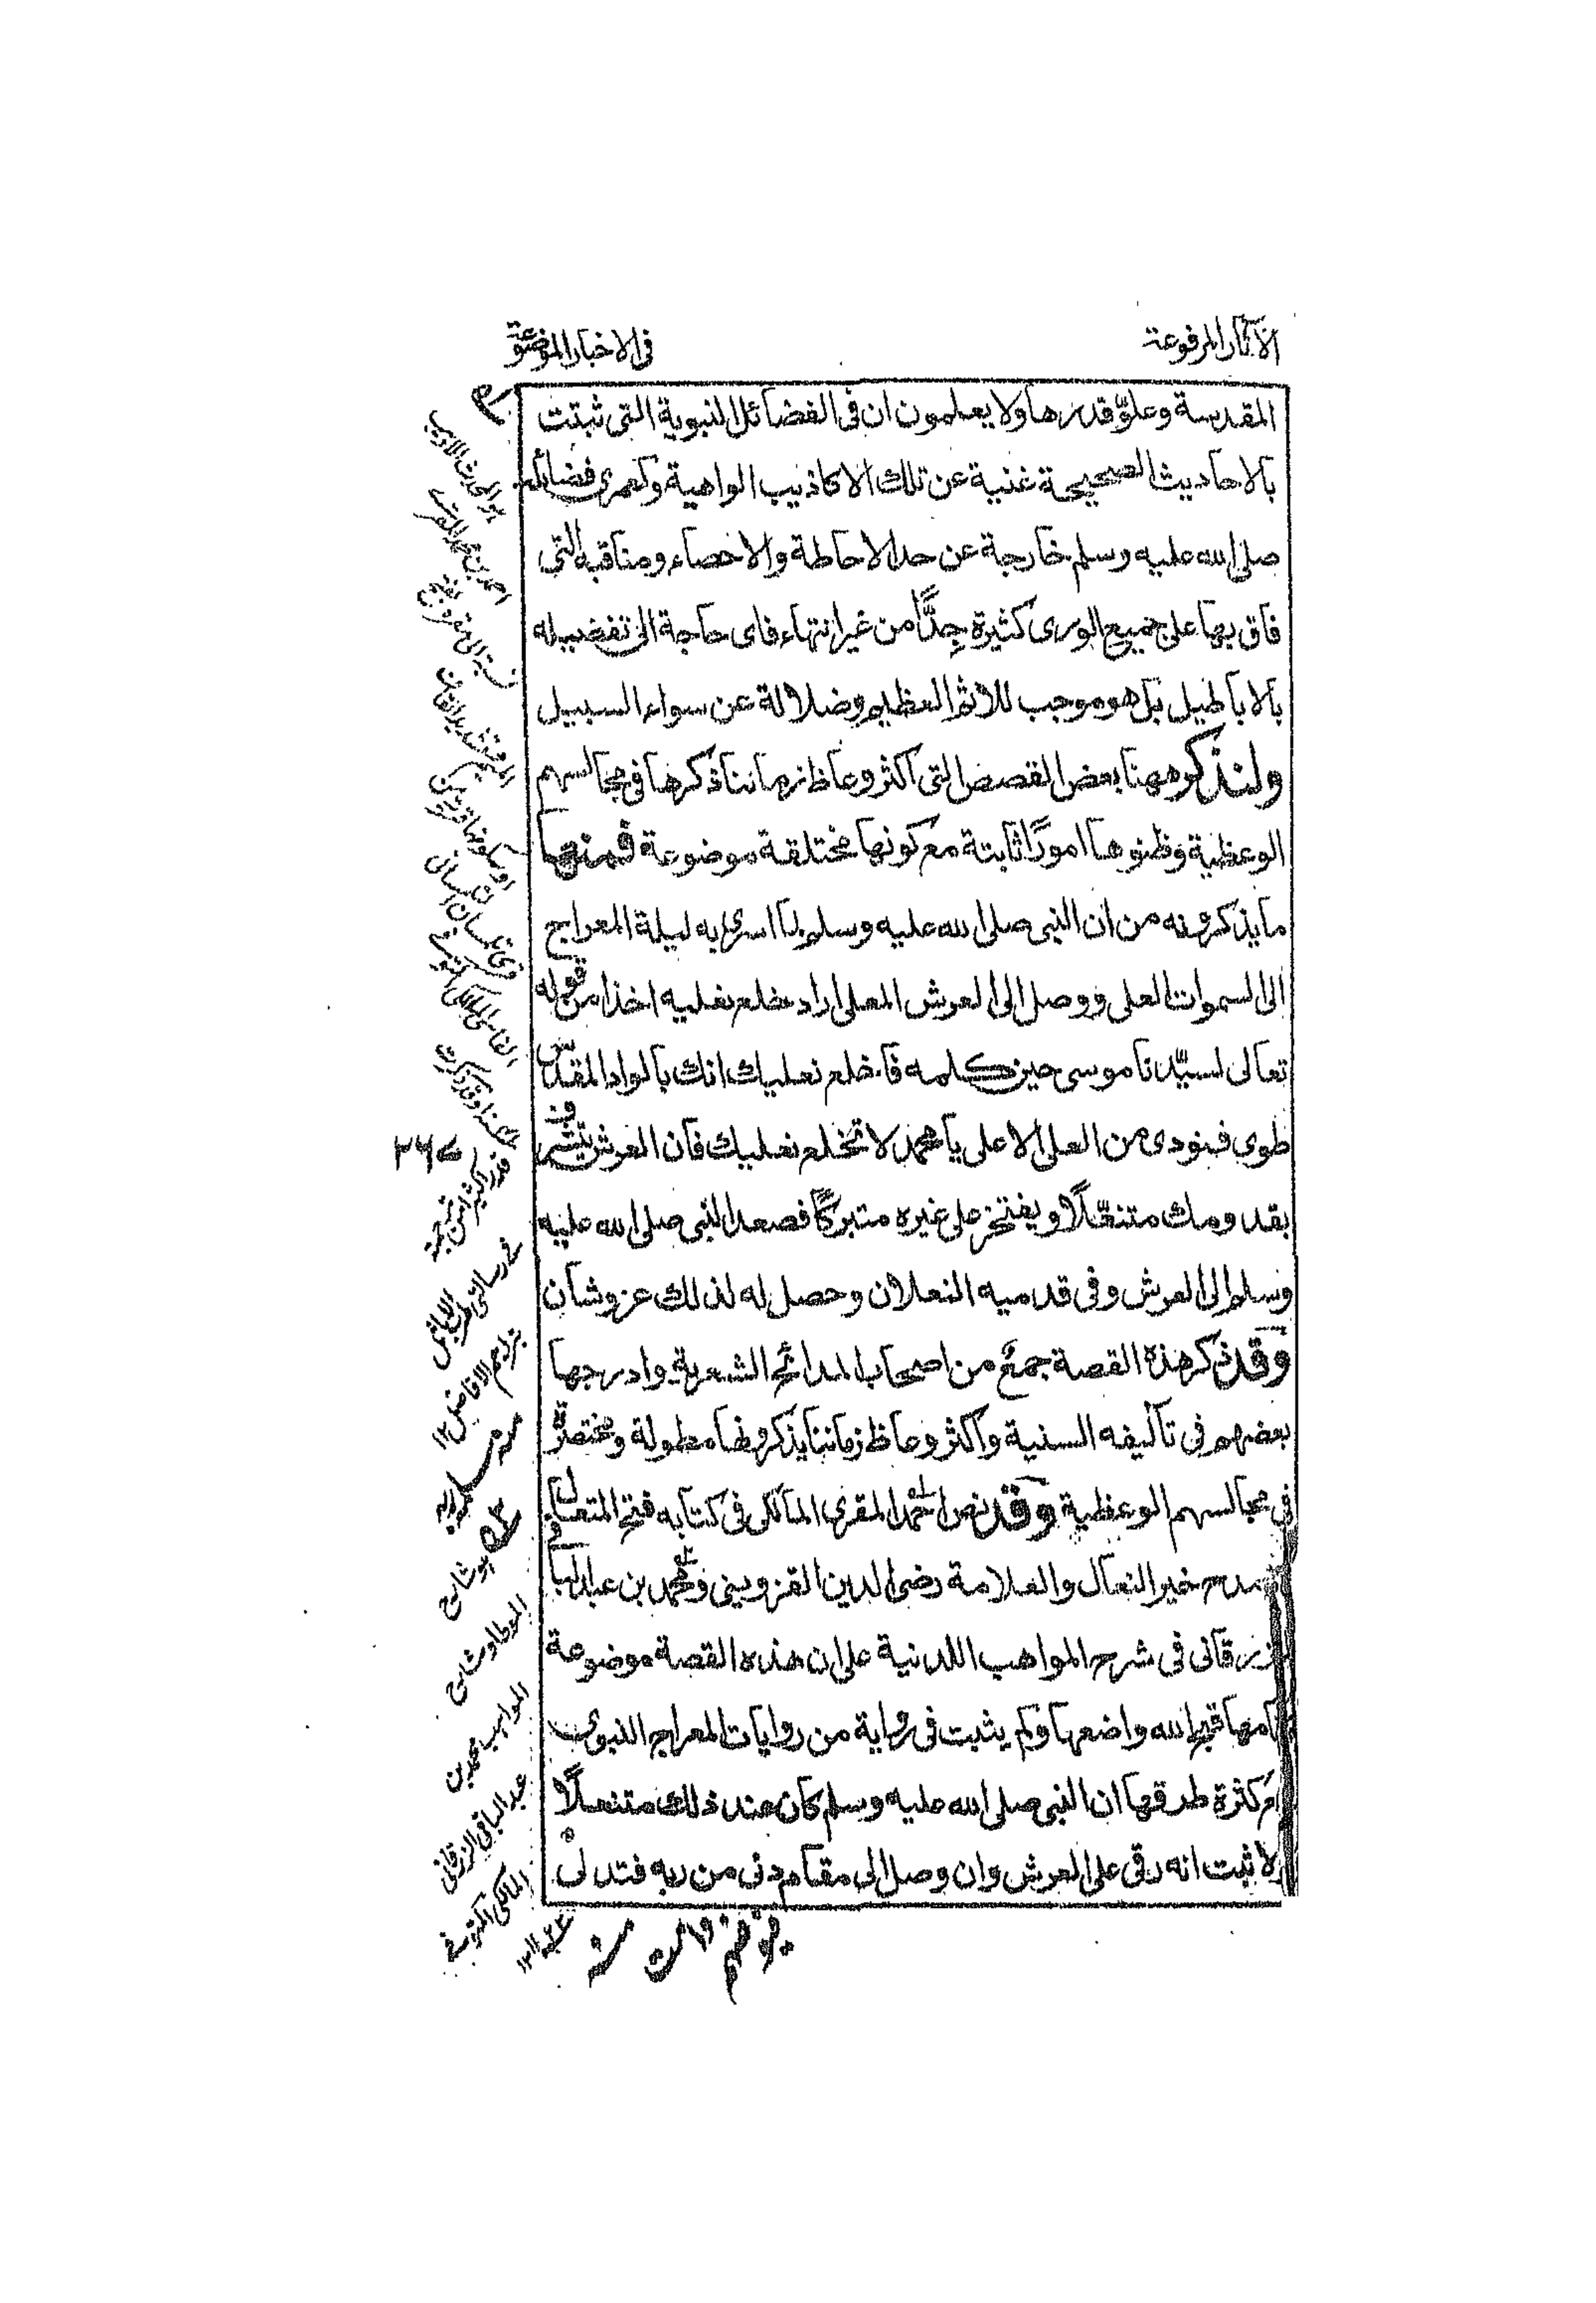 الآثار المرفوعة
فى الاخبار الموضوعة
المقدسة وعلوّ قدرها ولا يعلمون ان فى الفضائل النبوية التى ثبتت
بالاحاديث الصحيحة غنية عن تلك الاكاذيب الواهية ولعمرى فضائله
صلى الله عليه وسلم خارجة عن حد الاحاطة والاحصاء ومناقبه التى
فاق بها على جميع الورى كثيرة جدًّا من غير انتهاء فاى حاجة الى تفضيله
بالاباطيل بل هو موجب للاثم العظيم وضلالة عن سواء السبيل
ولنذكر ههنا بعض القصص التى اكثر وعاظ زماننا ذكرها فى مجالسهم
الوعظية وظنوها امورًا ثابتة مع كونها مختلقة موضوعة فمنها
ما يذكرونه من ان النبى صلى الله عليه وسلم لما اسرى به ليلة المعراج
الى السموات العلى ووصل الى العرش المعلى اراد خلع نعليه اخذا من قوله
تعالى لسيّدنا موسى حين كلمه فاخلع نعليك انك بالواد المقدس
طوى فنودى من العلى الاعلى يا محمد لا تخلع نعليك فان العرش يتشرف
بقدومك متنعّلًا ويفتخر على غيره متبركًا فصعد النبى صلى الله عليه
وسلم الى العرش وفى قدميه النعلان وحصل له لذلك عز وشان
وقد ذكر هذه القصة جمع من اصحاب المدائح الشعرية وادرجها
بعضهم فى تاليفه السنية واكثر وعاظ زماننا يذكرونها مطولة ومختصرة
فى مجالسهم الوعظية وقد نص احمد المقرى المالكى فى كتابه فتح المتعال فى
مدح خير النعال والعلامة رضى الدين القزوينى ومحمد بن عبد الباقى
الزرقانى فى شرح المواهب اللدنية على ان هذه القصة موضوعة
قبح الله واضعها ولم يثبت فى رواية من روايات المعراج النبوى
مع كثرة طرقها ان النبى صلى الله عليه وسلم كان عند ذلك متنعلًا
ولا ثبت انه رقى على العرش وان وصل الى مقام دنى من ربه فتدلى
هو المحدث الاديب
احمد بن محمد المقرى
فى رسالتى
تراجم الافاضل ١٢
منه
هو شارح
الموطا وشارح
المواهب محمد بن
عبد الباقى الزرقانى
المالكى المتوفى
منه